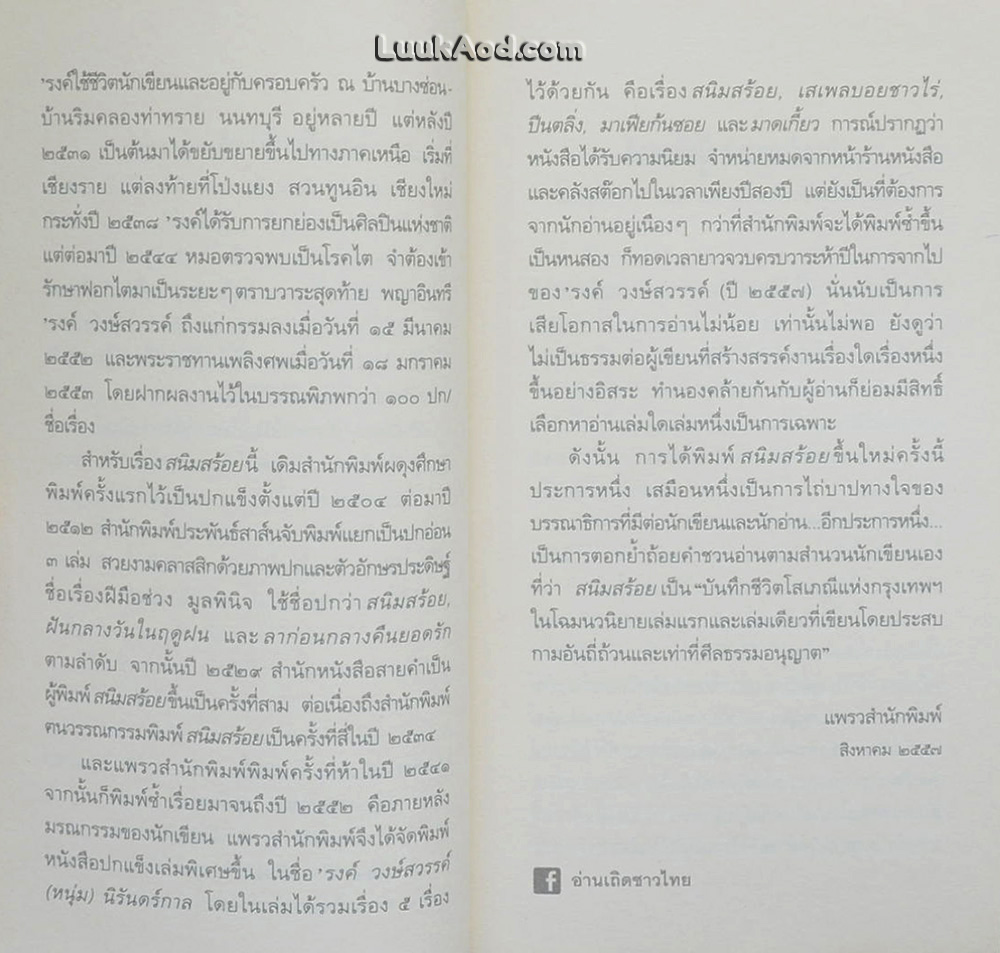 LuukAod.com
'รงค์ใช้ชีวิตนักเขียนและอยู่กับครอบครัว ณ บ้านบางซ่อน-
บ้านริมคลองท่าทราย นนทบุรี อยู่หลายปี แต่หลังปี
๒๕๓๑ เป็นต้นมาได้ขยับขยายขึ้นไปทางภาคเหนือ เริ่มที่
เชียงราย แต่ลงท้ายที่โป่งแยง สวนทูนอิน เชียงใหม่
กระทั่งปี ๒๕๓๘ 'รงค์ได้รับการยกย่องเป็นศิลปินแห่งชาติ
แต่ต่อมาปี ๒๕๔๔ หมอตรวจพบเป็นโรคไต จำต้องเข้า
รักษาฟอกไตมาเป็นระยะๆ ตราบวาระสุดท้าย พญาอินทรี
'รงค์ วงษ์สวรรค์ ถึงแก่กรรมลงเมื่อวันที่ ๑๕ มีนาคม
๒๕๕๒ และพระราชทานเพลิงศพเมื่อวันที่ ๑๘ มกราคม
๒๕๕๓ โดยฝากผลงานไว้ในบรรณพิภพกว่า ๑๐๐ ปก/
ชื่อเรื่อง
สำหรับเรื่อง สนิมสร้อย นี้ เดิมสำนักพิมพ์ผดุงศึกษา
พิมพ์ครั้งแรกไว้เป็นปกแข็งตั้งแต่ปี ๒๕๐๔ ต่อมาปี
๒๕๑๒ สำนักพิมพ์ประพันธ์สาส์นจับพิมพ์แยกเป็นปกอ่อน
๓ เล่ม สวยงามคลาสสิกด้วยภาพปกและตัวอักษรประดิษฐ์
ชื่อเรื่องฝีมือช่วง มูลพินิจ ใช้ชื่อปกว่า สนิมสร้อย,
ฝันกลางวันในฤดูฝน และ ลาก่อนกลางคืนยอดรัก
ตามลำดับ จากนั้นปี ๒๕๒๙ สำนักหนังสือสายคำเป็น
ผู้พิมพ์ สนิมสร้อย ขึ้นเป็นครั้งที่สาม ต่อเนื่องถึงสำนักพิมพ์
ฅนวรรณกรรมพิมพ์ สนิมสร้อย เป็นครั้งที่สี่ในปี ๒๕๓๔
และแพรวสำนักพิมพ์พิมพ์ครั้งที่ห้าในปี ๒๕๔๑
จากนั้นก็พิมพ์ซ้ำเรื่อยมาจนถึงปี ๒๕๕๒ คือภายหลัง
มรณกรรมของนักเขียน แพรวสำนักพิมพ์จึงได้จัดพิมพ์
หนังสือปกแข็งเล่มพิเศษขึ้น ในชื่อ 'รงค์ วงษ์สวรรค์
(หนุ่ม) นิรันดร์กาล โดยในเล่มได้รวมเรื่อง ๕ เรื่อง
ไว้ด้วยกัน คือเรื่อง สนิมสร้อย, เสเพลบอยชาวไร่,
ปีนตลิ่ง, มาเฟียก้นซอย และ มาดเกี้ยว การณ์ปรากฏว่า
หนังสือได้รับความนิยม จำหน่ายหมดจากหน้าร้านหนังสือ
และคลังสต๊อกไปในเวลาเพียงปีสองปี แต่ยังเป็นที่ต้องการ
จากนักอ่านอยู่เนืองๆ กว่าที่สำนักพิมพ์จะได้พิมพ์ซ้ำขึ้น
เป็นหนสอง ก็ทอดเวลายาวจวบครบวาระห้าปีในการจากไป
ของ 'รงค์ วงษ์สวรรค์ (ปี ๒๕๕๗) นั่นนับเป็นการ
เสียโอกาสในการอ่านไม่น้อย เท่านั้นไม่พอ ยังดูว่า
ไม่เป็นธรรมต่อผู้เขียนที่สร้างสรรค์งานเรื่องใดเรื่องหนึ่ง
ขึ้นอย่างอิสระ ทำนองคล้ายกันกับผู้อ่านก็ย่อมมีสิทธิ์
เลือกหาอ่านเล่มใดเล่มหนึ่งเป็นการเฉพาะ
ดังนั้น การได้พิมพ์ สนิมสร้อย ขึ้นใหม่ครั้งนี้
ประการหนึ่ง เสมือนหนึ่งเป็นการไถ่บาปทางใจของ
บรรณาธิการที่มีต่อนักเขียนและนักอ่าน...อีกประการหนึ่ง...
เป็นการตอกย้ำถ้อยคำชวนอ่านตามสำนวนนักเขียนเอง
ที่ว่า สนิมสร้อย เป็น “บันทึกชีวิตโสเภณีแห่งกรุงเทพฯ
ในโฉมนวนิยายเล่มแรกและเล่มเดียวที่เขียนโดยประสบ
กามอันถี่ถ้วนและเท่าที่ศีลธรรมอนุญาต”
แพรวสำนักพิมพ์
สิงหาคม ๒๕๕๗
f อ่านเถิดชาวไทย